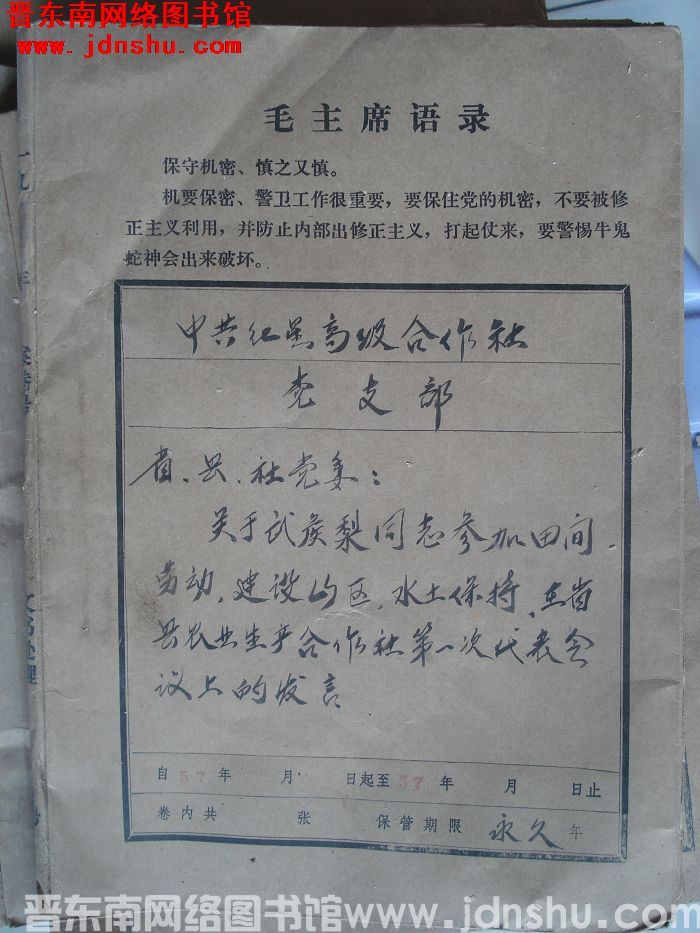 晋东南网络图书馆
www.jdnshu.com
毛主席语录
保守机密、慎之又慎。
机要保密、警卫工作很重要，要保住党的机密，不要被修
正主义利用，并防止内部出修正主义，打起仗来，要警惕牛鬼
蛇神会出来破坏。
中共红星高级合作社
党支部
省、县、社党委：
关于武侯梨同志参加田间
劳动、建设山区，水土保持，在省
县农业生产合作社第一次代表会
议上的发言
自57年 月 日起至57年 月 日止
卷内共 张 保管期限 永久 年
一九 年
案卷号
文书处理
号
晋东南网络图书馆 www.jdnshu.com